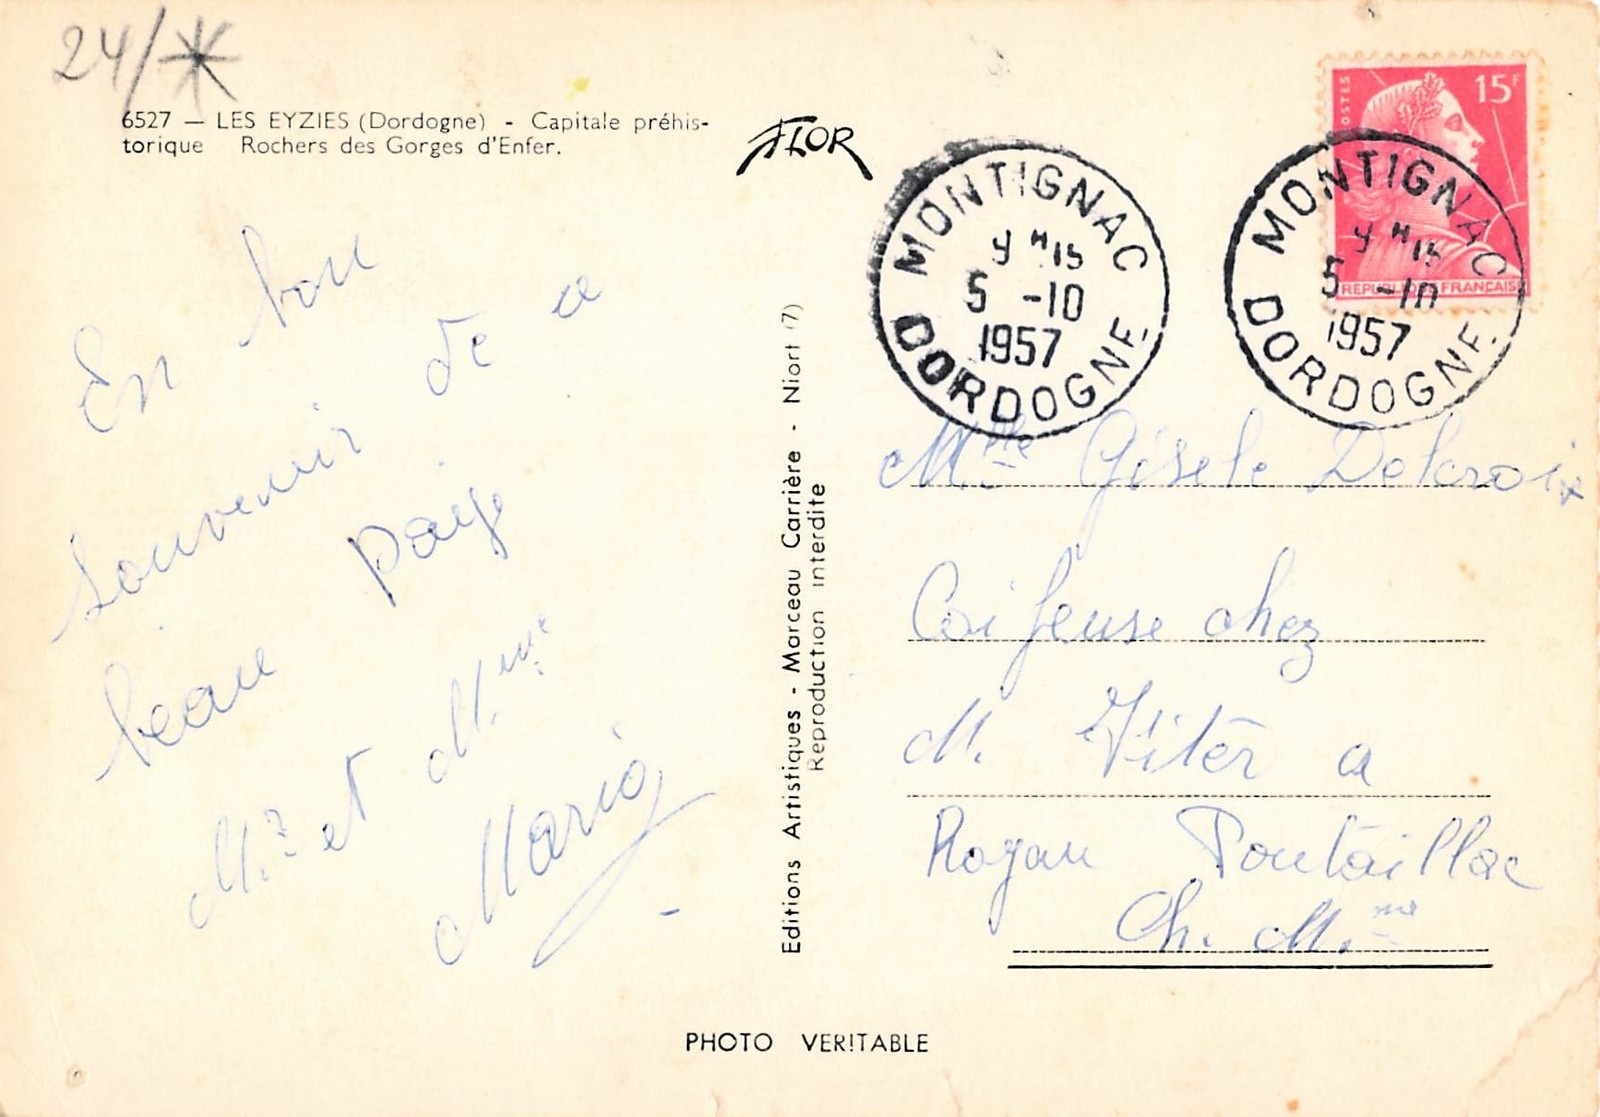 24/*
6527 — LES EYZIES (Dordogne) - Capitale préhis-
torique Rochers des Gorges d'Enfer.
FLOR
En bon
souvenir de ce
beau paije
Mr et Mme
Mario
Editions Artistiques - Marceau Carrière - Niort (7)
Reproduction interdite
15F
POSTES
REPUBLIQUE FRANÇAISE
MONTIGNAC
9H15
5-10
1957
DORDOGNE
MONTIGNAC
9H15
5-10
1957
DORDOGNE
Mlle Gisele Delcroix
Coifeuse chez
M. a
Royan Pontaillac
Ch. Mme
PHOTO VERITABLE